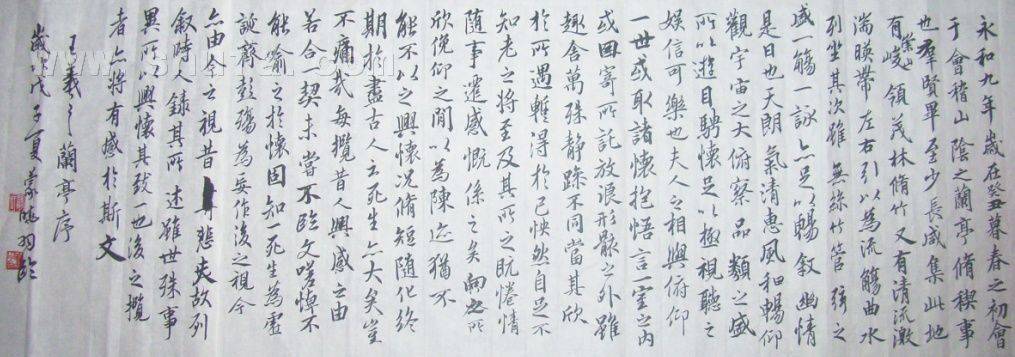 永和九年歲在癸丑暮春之初會
于會稽山陰之蘭亭脩稧事
也羣賢畢至少長咸集此地
有崇山峻領茂林脩竹又有清流激
湍暎帶左右引以為流觴曲水
列坐其次雖無絲竹管弦之
盛一觴一詠亦足以暢敘幽情
是日也天朗氣清惠風和暢仰
觀宇宙之大俯察品類之盛
所以遊目騁懷足以極視聽之
娛信可樂也夫人之相與俯仰
一世或取諸懷抱悟言一室之內
或因寄所託放浪形骸之外雖
趣舍萬殊静躁不同當其欣
於所遇暫得於己怏然自足不
知老之將至及其所之既惓情
隨事遷感慨係之矣向之所
欣俛仰之間以為陳迹猶不
能不以之興懷況脩短隨化終
期於盡古人云死生亦大矣豈
不痛哉每攬昔人興感之由
若合一契未嘗不臨文嗟悼不
能喻之於懷固知一死生為虛
誕齊彭殤為妄作後之視今
亦由今之視昔悲夫故列
敘時人錄其所述雖世殊事
異所以興懷其致一也後之攬
者亦將有感於斯文
王羲之蘭亭序
歲次戊子夏臨